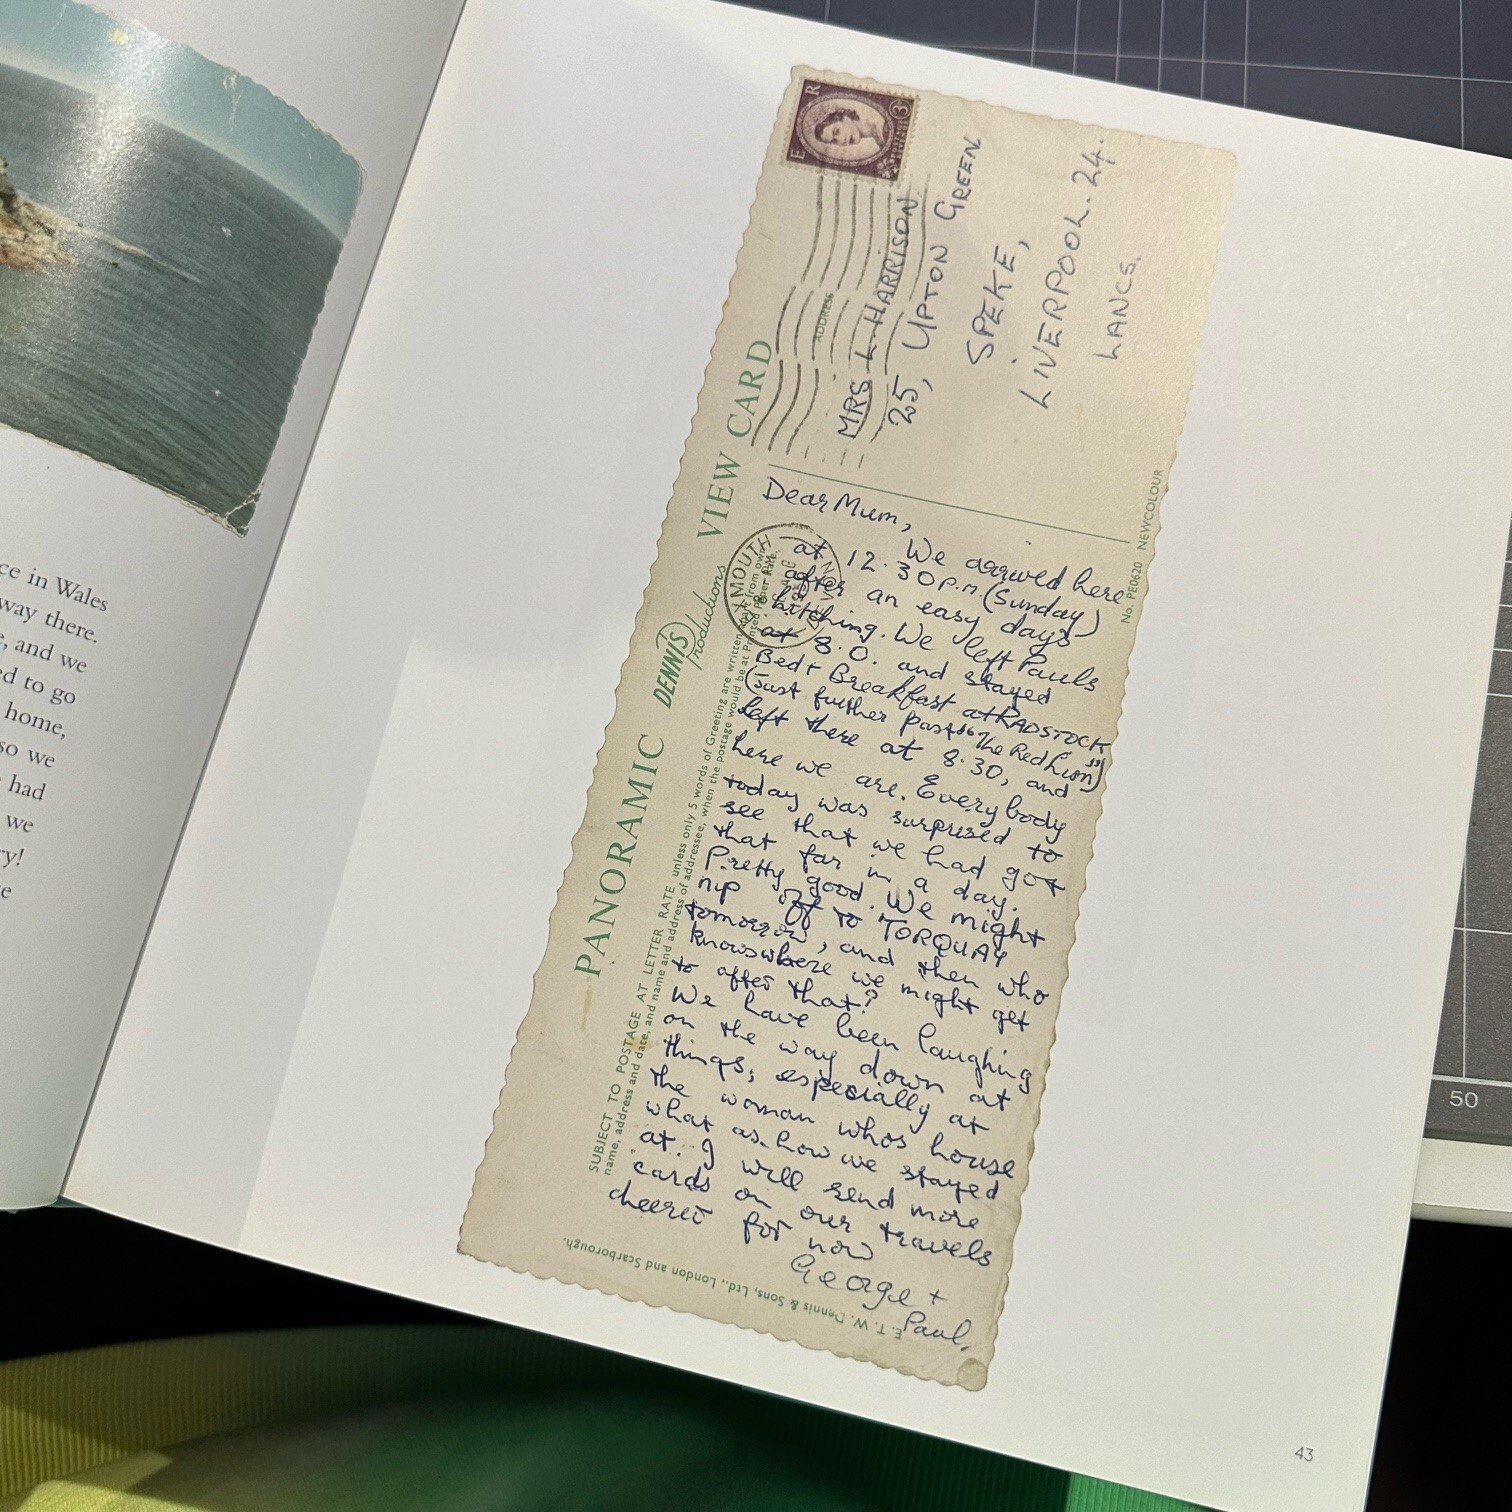 ce in Wales
way there.
e, and we
ed to go
home,
so we
had
we
ry!
e
E R
3D
ADDRESS
MRS L. HARRISON
25, UPTON GREEN
SPEKE,
LIVERPOOL. 24.
LANCS.
PANORAMIC VIEW CARD
DENNIS Productions
SUBJECT TO POSTAGE AT LETTER RATE unless only 5 words of Greeting are written apart from own
name, address and date, and name and address of addressee, when the postage would be at Printed Paper Rate
No. PE0620 NEWCOLOUR
EXMOUTH
Dear Mum,
We arrived here
at 12.30p.m. (Sunday)
after an easy days
hitching. We left Pauls
at 8.0. and stayed
Bed + Breakfast at RADSTOCK
(Just further past "The Red Lion")
left there at 8.30, and
here we are. Everybody
today was surprised to
see that we had got
that far in a day.
Pretty good. We might
nip off to TORQUAY
tomorrow, and then who
knows where we might get
to after that?
We have been laughing
on the way down at
things, especially at
the woman whos house
what as. how we stayed
at. I will send more
cards on our travels
cheerio for now
George +
Paul.
E. T. W. Dennis & Sons, Ltd., London and Scarborough.
43
50